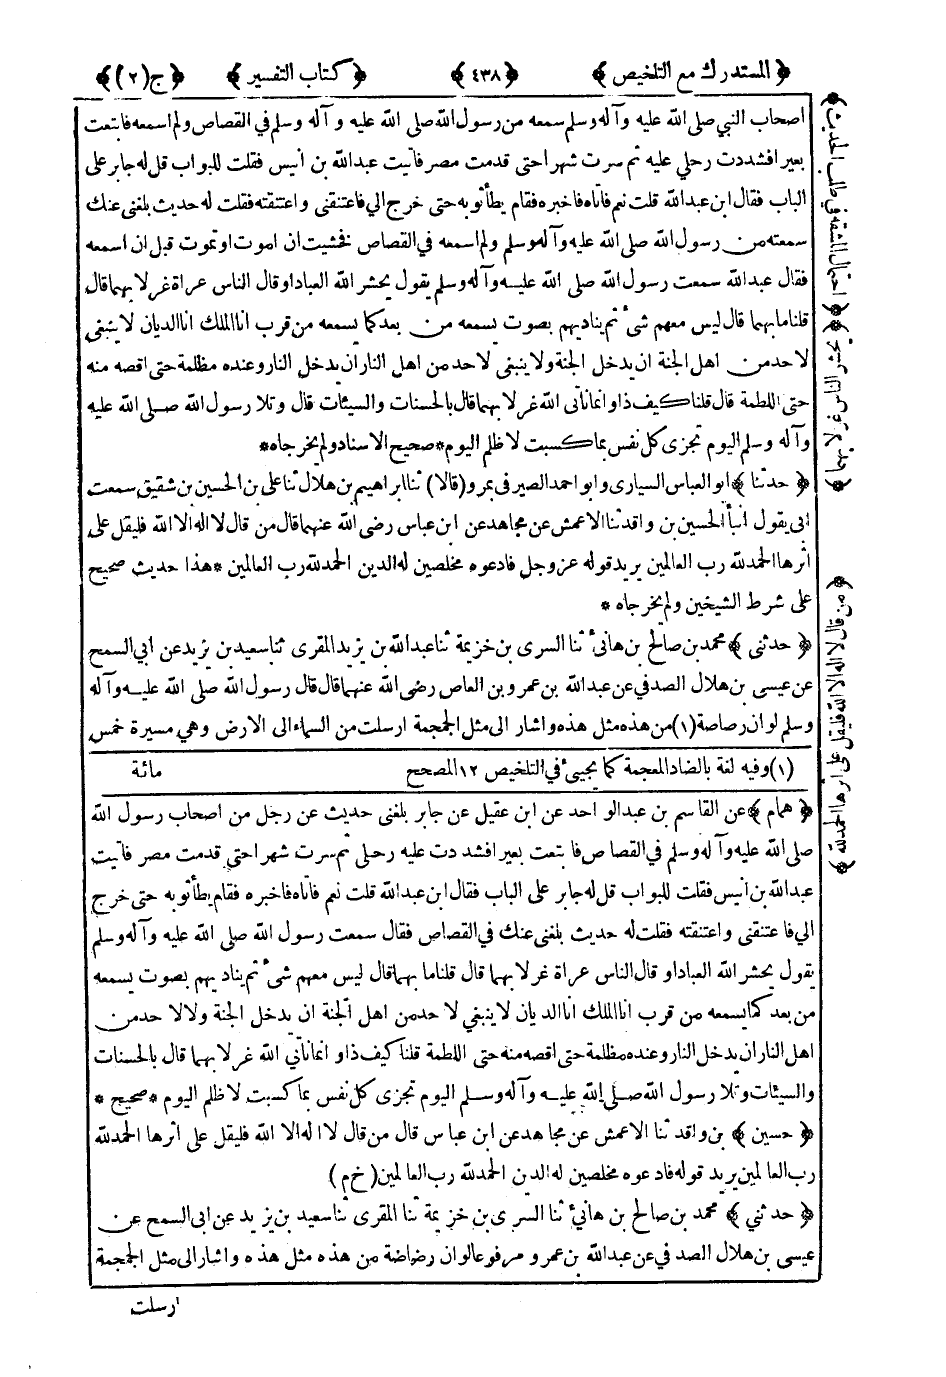 ﴿ المستدرك مع التلخيص ﴾ ﴿ ٤٣٨ ﴾ ﴿ كتاب التفسير ﴾ ﴿ ج (٢) ﴾
اصحاب النبي صلى الله عليه وآله وسلم سمعه من رسول الله صلى الله عليه وآله وسلم في القصاص ولم اسمعه فابتعت
بعيرا فشددت رحلي عليه ثم سرت شهرا حتى قدمت مصر فأتيت عبدالله بن انيس فقلت للبواب قل له جابر على
الباب فقال ابن عبدالله قلت نعم فاتاه فاخبره فقام يطأ ثوبه حتى خرج الي فاعتنقنى واعتنقته فقلت له حديث بلغنى عنك
سمعته من رسول الله صلى الله عليه وآله وسلم ولم اسمعه في القصاص فخشيت ان اموت او تموت قبل ان اسمعه
فقال عبدالله سمعت رسول الله صلى الله عليه وآله وسلم يقول يحشر الله العباد او قال الناس عراة غرلا بهما قال
قلنا ما بهما قال ليس معهم شئ ثم يناديهم بصوت يسمعه من بعد كما يسمعه من قرب انا الملك انا الديان لا ينبغى
لاحد من اهل الجنة ان يدخل الجنة ولا ينبغى لاحد من اهل النار ان يدخل النار وعنده مظلمة حتى اقصه منه
حتى اللطمة قال قلنا كيف ذا وانما نأتى الله غرلا بهما قال بالحسنات والسيئات قال وتلا رسول الله صلى الله عليه
وآله وسلم اليوم تجزى كل نفس بما كسبت لا ظلم اليوم * صحيح الاسناد ولم يخرجاه *
﴿ حدثنا ﴾ ابو العباس السيارى وابو احمد الصيرفى بمرو (قالا) ثنا ابراهيم بن هلال ثنا على بن الحسين بن شقيق سمعت
ابى يقول انبأ الحسين بن واقد ثنا الاعمش عن مجاهد عن ابن عباس رضى الله عنهما قال من قال لا اله الا الله فليقل على
اثرها الحمد لله رب العالمين يريد قوله عز وجل فادعوه مخلصين له الدين الحمد لله رب العالمين * هذا حديث صحيح
على شرط الشيخين ولم يخرجاه *
﴿ حدثنى ﴾ محمد بن صالح بن هانئ ثنا السرى بن خزيمة ثنا عبدالله بن يزيد المقرى ثنا سعيد بن يزيد عن ابى السمح
عن عيسى بن هلال الصدفي عن عبدالله بن عمرو بن العاص رضى الله عنهما قال قال رسول الله صلى الله عليه وآله
وسلم لو ان رصاصة (١) من هذه مثل هذه واشار الى مثل الجمجمة ارسلت من السماء الى الارض وهي مسيرة خمس
(١) وفيه لغة بالضاد المعجمة كما يجيئ في التلخيص ١٢ المصحح مائة
﴿ همام ﴾ عن القاسم بن عبد الواحد عن ابن عقيل عن جابر بلغنى حديث عن رجل من اصحاب رسول الله
صلى الله عليه وآله وسلم في القصاص فابتعت بعيرا فشددت عليه رحلي ثم سرت شهرا حتى قدمت مصر فأتيت
عبدالله بن انيس فقلت للبواب قل له جابر على الباب فقال ابن عبدالله قلت نعم فاتاه فاخبره فقام يطأ ثوبه حتى خرج
الي فاعتنقنى واعتنقته فقلت له حديث بلغنى عنك في القصاص فقال سمعت رسول الله صلى الله عليه وآله وسلم
يقول يحشر الله العباد او قال الناس عراة غرلا بهما قال قلنا ما بهما قال ليس معهم شئ ثم يناديهم بصوت يسمعه
من بعد كما يسمعه من قرب انا الملك انا الديان لا ينبغي لاحد من اهل الجنة ان يدخل الجنة ولا لاحد من
اهل النار ان يدخل النار وعنده مظلمة حتى اقصه منه حتى اللطمة قلنا كيف ذا وانما نأتي الله غرلا بهما قال بالحسنات
والسيئات وتلا رسول الله صلى الله عليه وآله وسلم اليوم تجزى كل نفس بما كسبت لا ظلم اليوم * صحيح *
﴿ حسين ﴾ بن واقد ثنا الاعمش عن مجاهد عن ابن عباس قال من قال لا اله الا الله فليقل على اثرها الحمد لله
رب العالمين يريد قوله فادعوه مخلصين له الدين الحمد لله رب العالمين (خ م)
﴿ حدثني ﴾ محمد بن صالح بن هانئ ثنا السرى بن خزيمة ثنا المقرى ثنا سعيد بن يزيد عن ابى السمح عن
عيسى بن هلال الصدفي عن عبدالله بن عمرو مرفوعا لو ان رضاضة من هذه مثل هذه واشار الى مثل الجمجمة
ارسلت
﴿ احتمال المشقة في طلب الحديث ﴾
﴿ يحشر الناس عراة غرلا